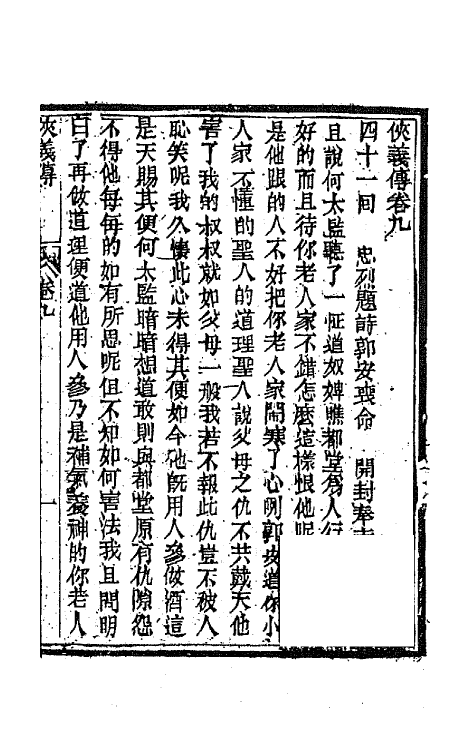 俠義傳卷九
四十一回　忠烈題詩郭安喪命　開封奉
且說何太監聽了一怔道奴婢瞧都堂爲人行
好的而且待你老人家不錯怎麽這樣恨他呢
是他跟的人不好把你老人家鬧寒了心咧郭安道你小
人家不懂的聖人的道理聖人說父母之仇不共戴天他
害了我的叔叔就如父母一般我若不報此仇豈不被人
恥笑呢我久懷此心未得其便如今他旣用人參做酒這
是天賜其便何太監暗暗想道敢則與都堂原有仇隙怨
不得他每每的如有所思呢但不知如何害法我且問明
白了再做道理便道他用人參乃是補氣養神的你老人
俠義傳　卷九　一